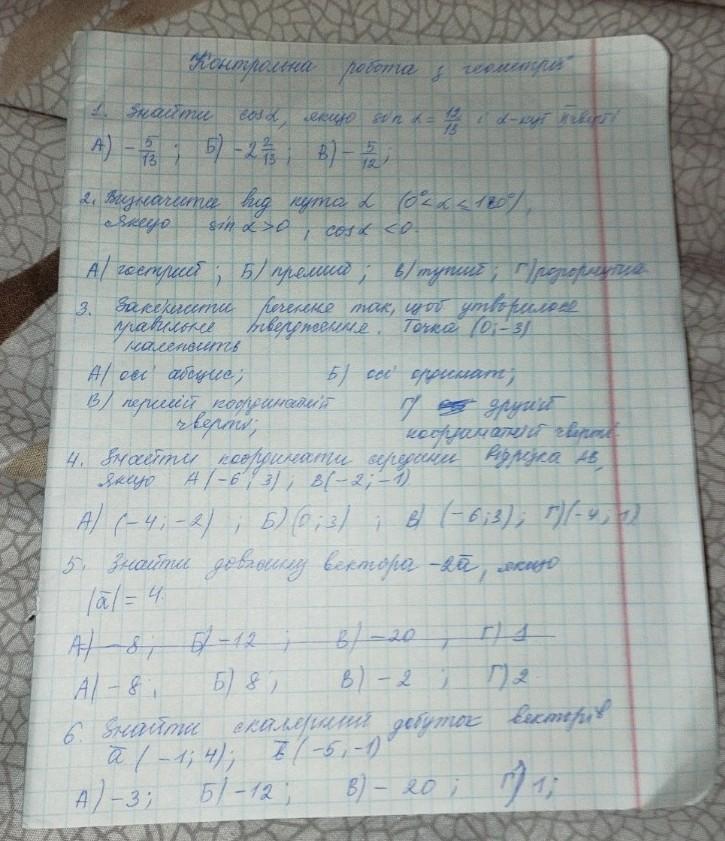 Контрольна робота з геометрії
1. Знайти cosα, якщо sin α = 12/13 і α-кут II чверті
А) -5/13 ; Б) -2 2/13 ; В) -5/12 ;
2. Визначити вид кута α (0° < α < 180°),
якщо sin α > 0 , cos α < 0.
А) гострий ; Б) прямий ; В) тупий ; Г) розгорнутий
3. Закінчити речення так, щоб утворилося
правильне твердження. Точка (0; -3)
належить
А) осі абсцис; Б) осі ординат;
В) першій координатній Г) другій
чверті; координатній чверті.
4. Знайти координати середини відрізка AB,
якщо A (-6; 3); B(-2; -1)
А) (-4; -2) ; Б) (0; 3) ; В) (-6; 3) ; Г) (-4; 1)
5. Знайти довжину вектора -2a̅, якщо
|a̅| = 4.
А) -8; Б) -12 ; В) -20 ; Г) 1
А) -8; Б) 8; В) -2 ; Г) 2
6. Знайти скалярний добуток векторів
a̅ (-1; 4); b̅ (-5; -1)
А) -3; Б) -12; В) -20; Г) 1;